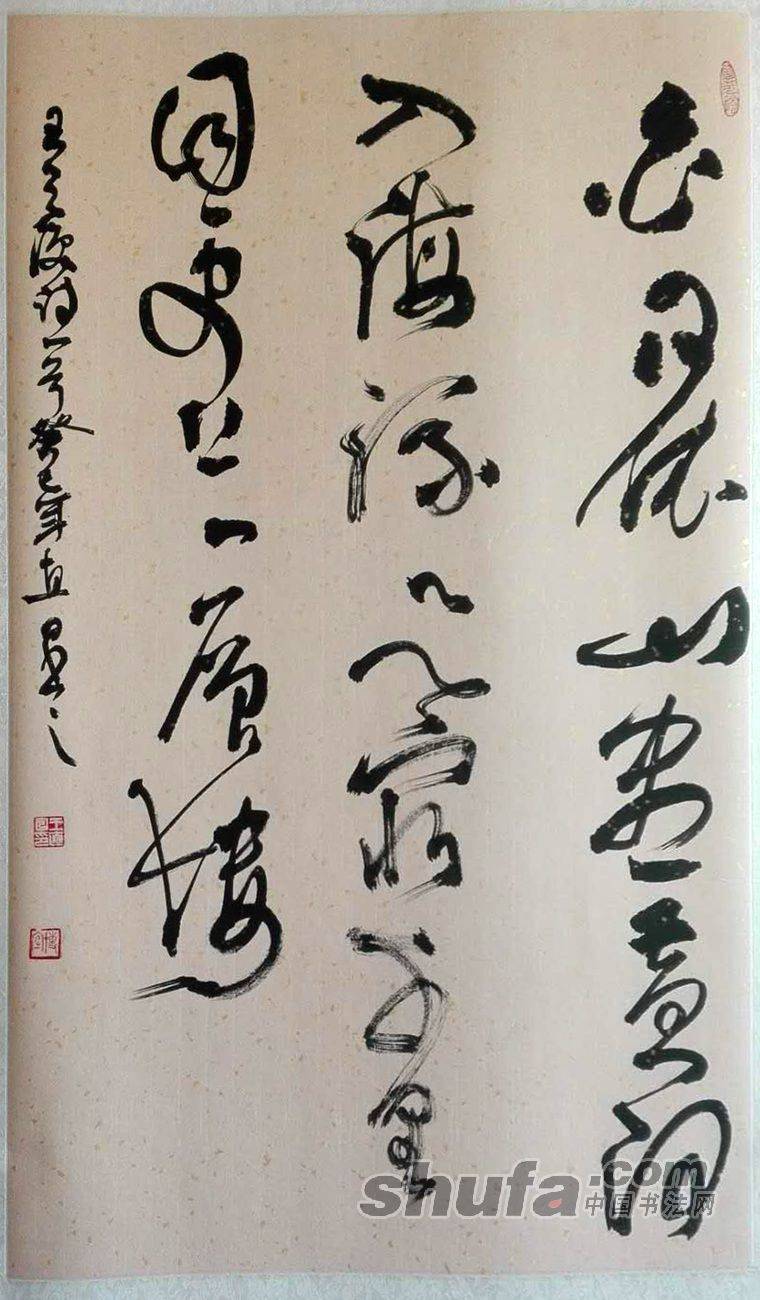 白日依山盡黄河
入海流欲窮千里
目更上一層樓
王之渙詩一首癸巳年
shufa.com
中国书法网